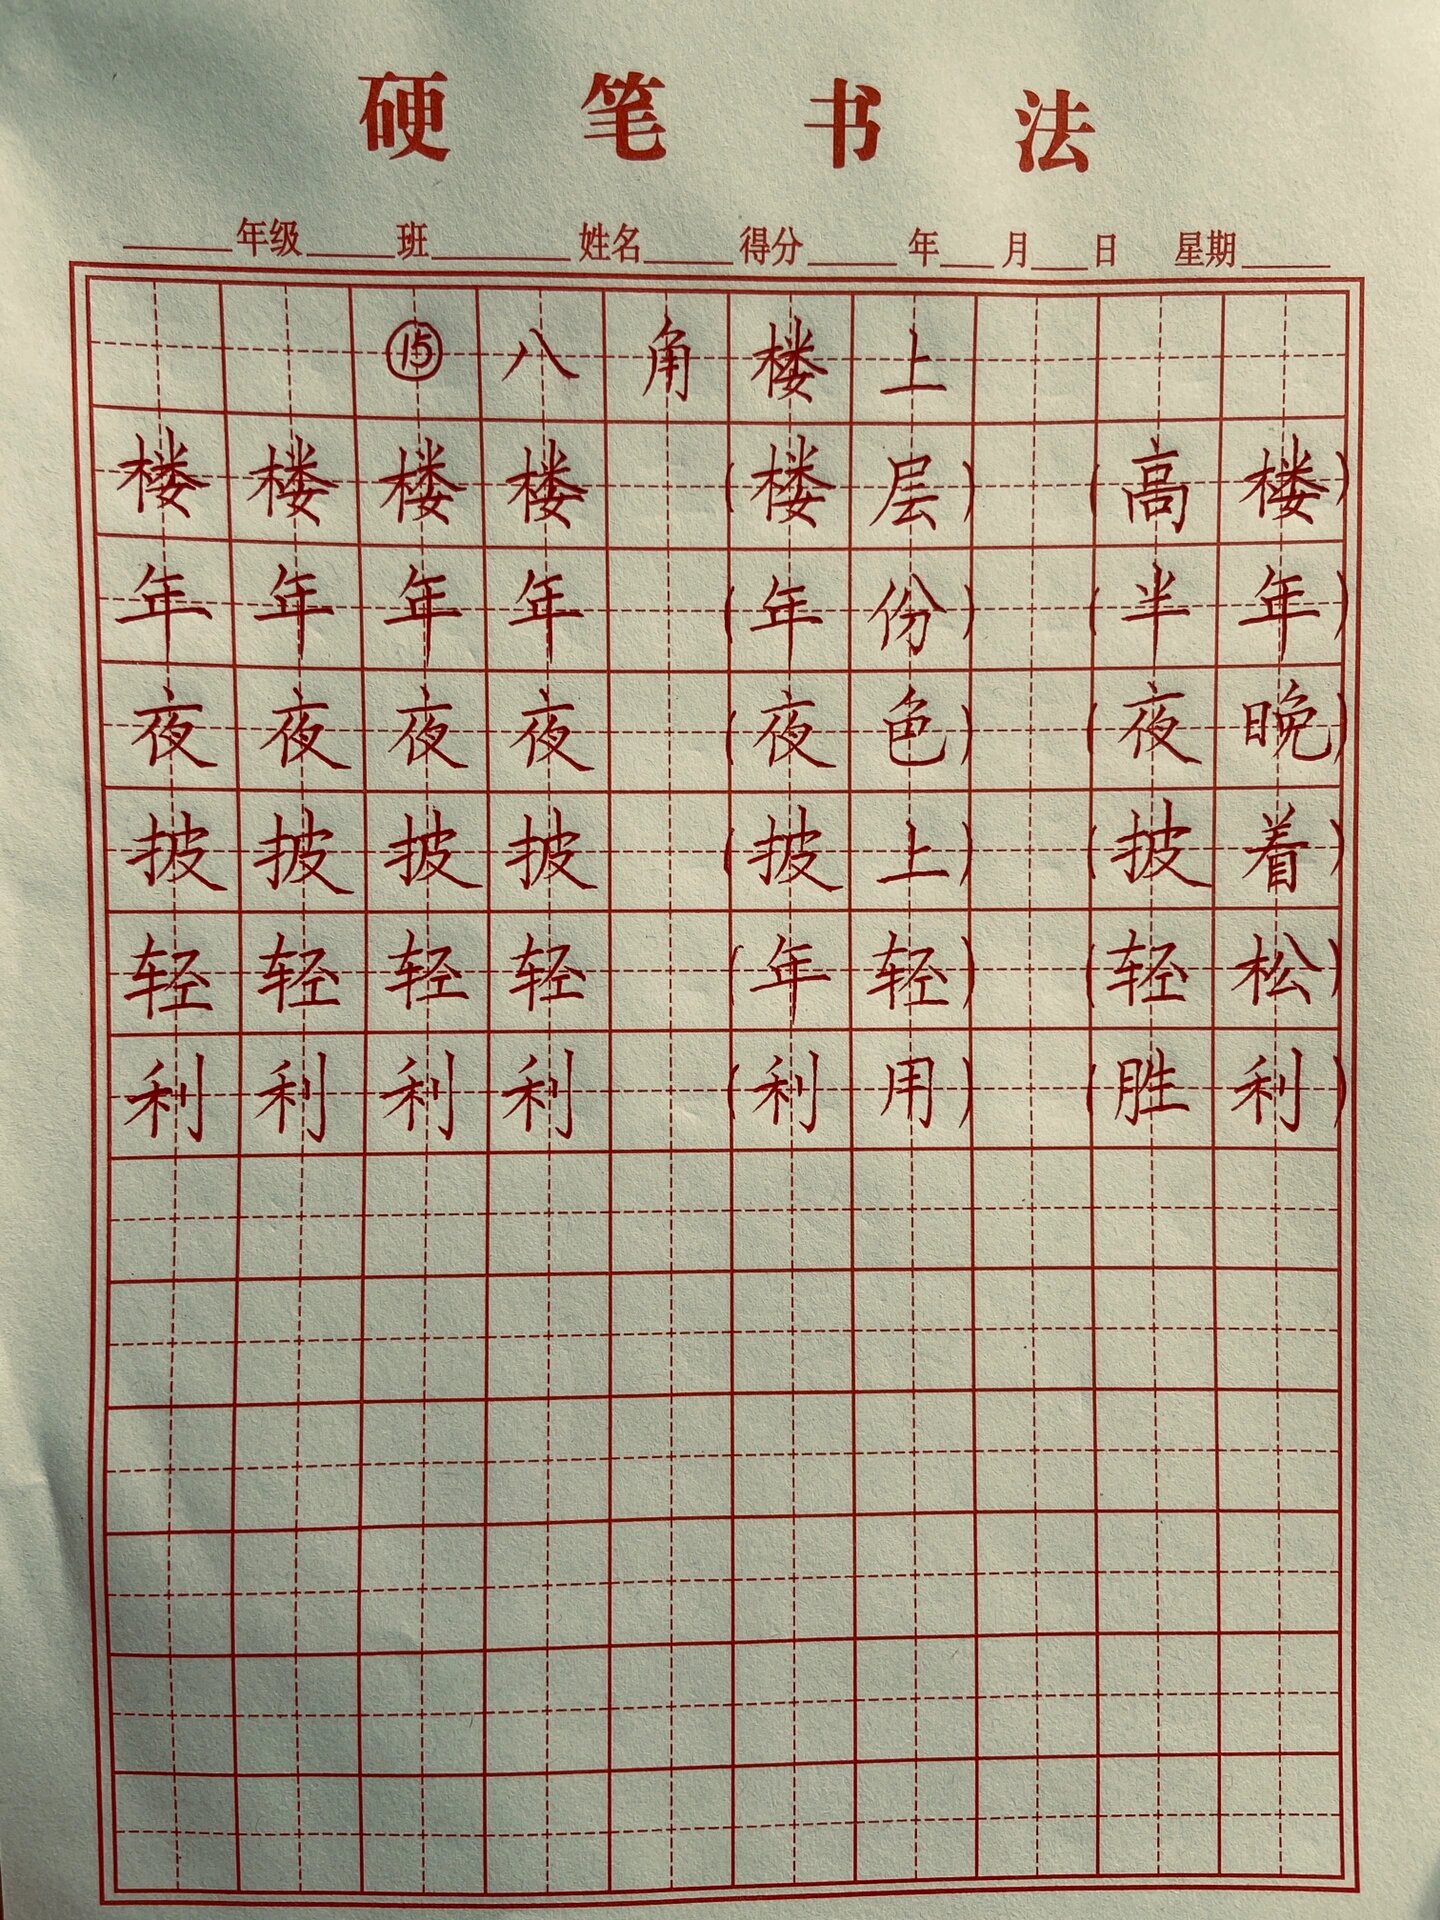 硬笔书法
______年级_____班________姓名_____得分_____年___月___日 星期_____
⑮八角楼上
楼楼楼楼(楼层)(高楼)
年年年年(年份)(半年)
夜夜夜夜(夜色)(夜晚)
披披披披(披上)(披着)
轻轻轻轻(年轻)(轻松)
利利利利(利用)(胜利)